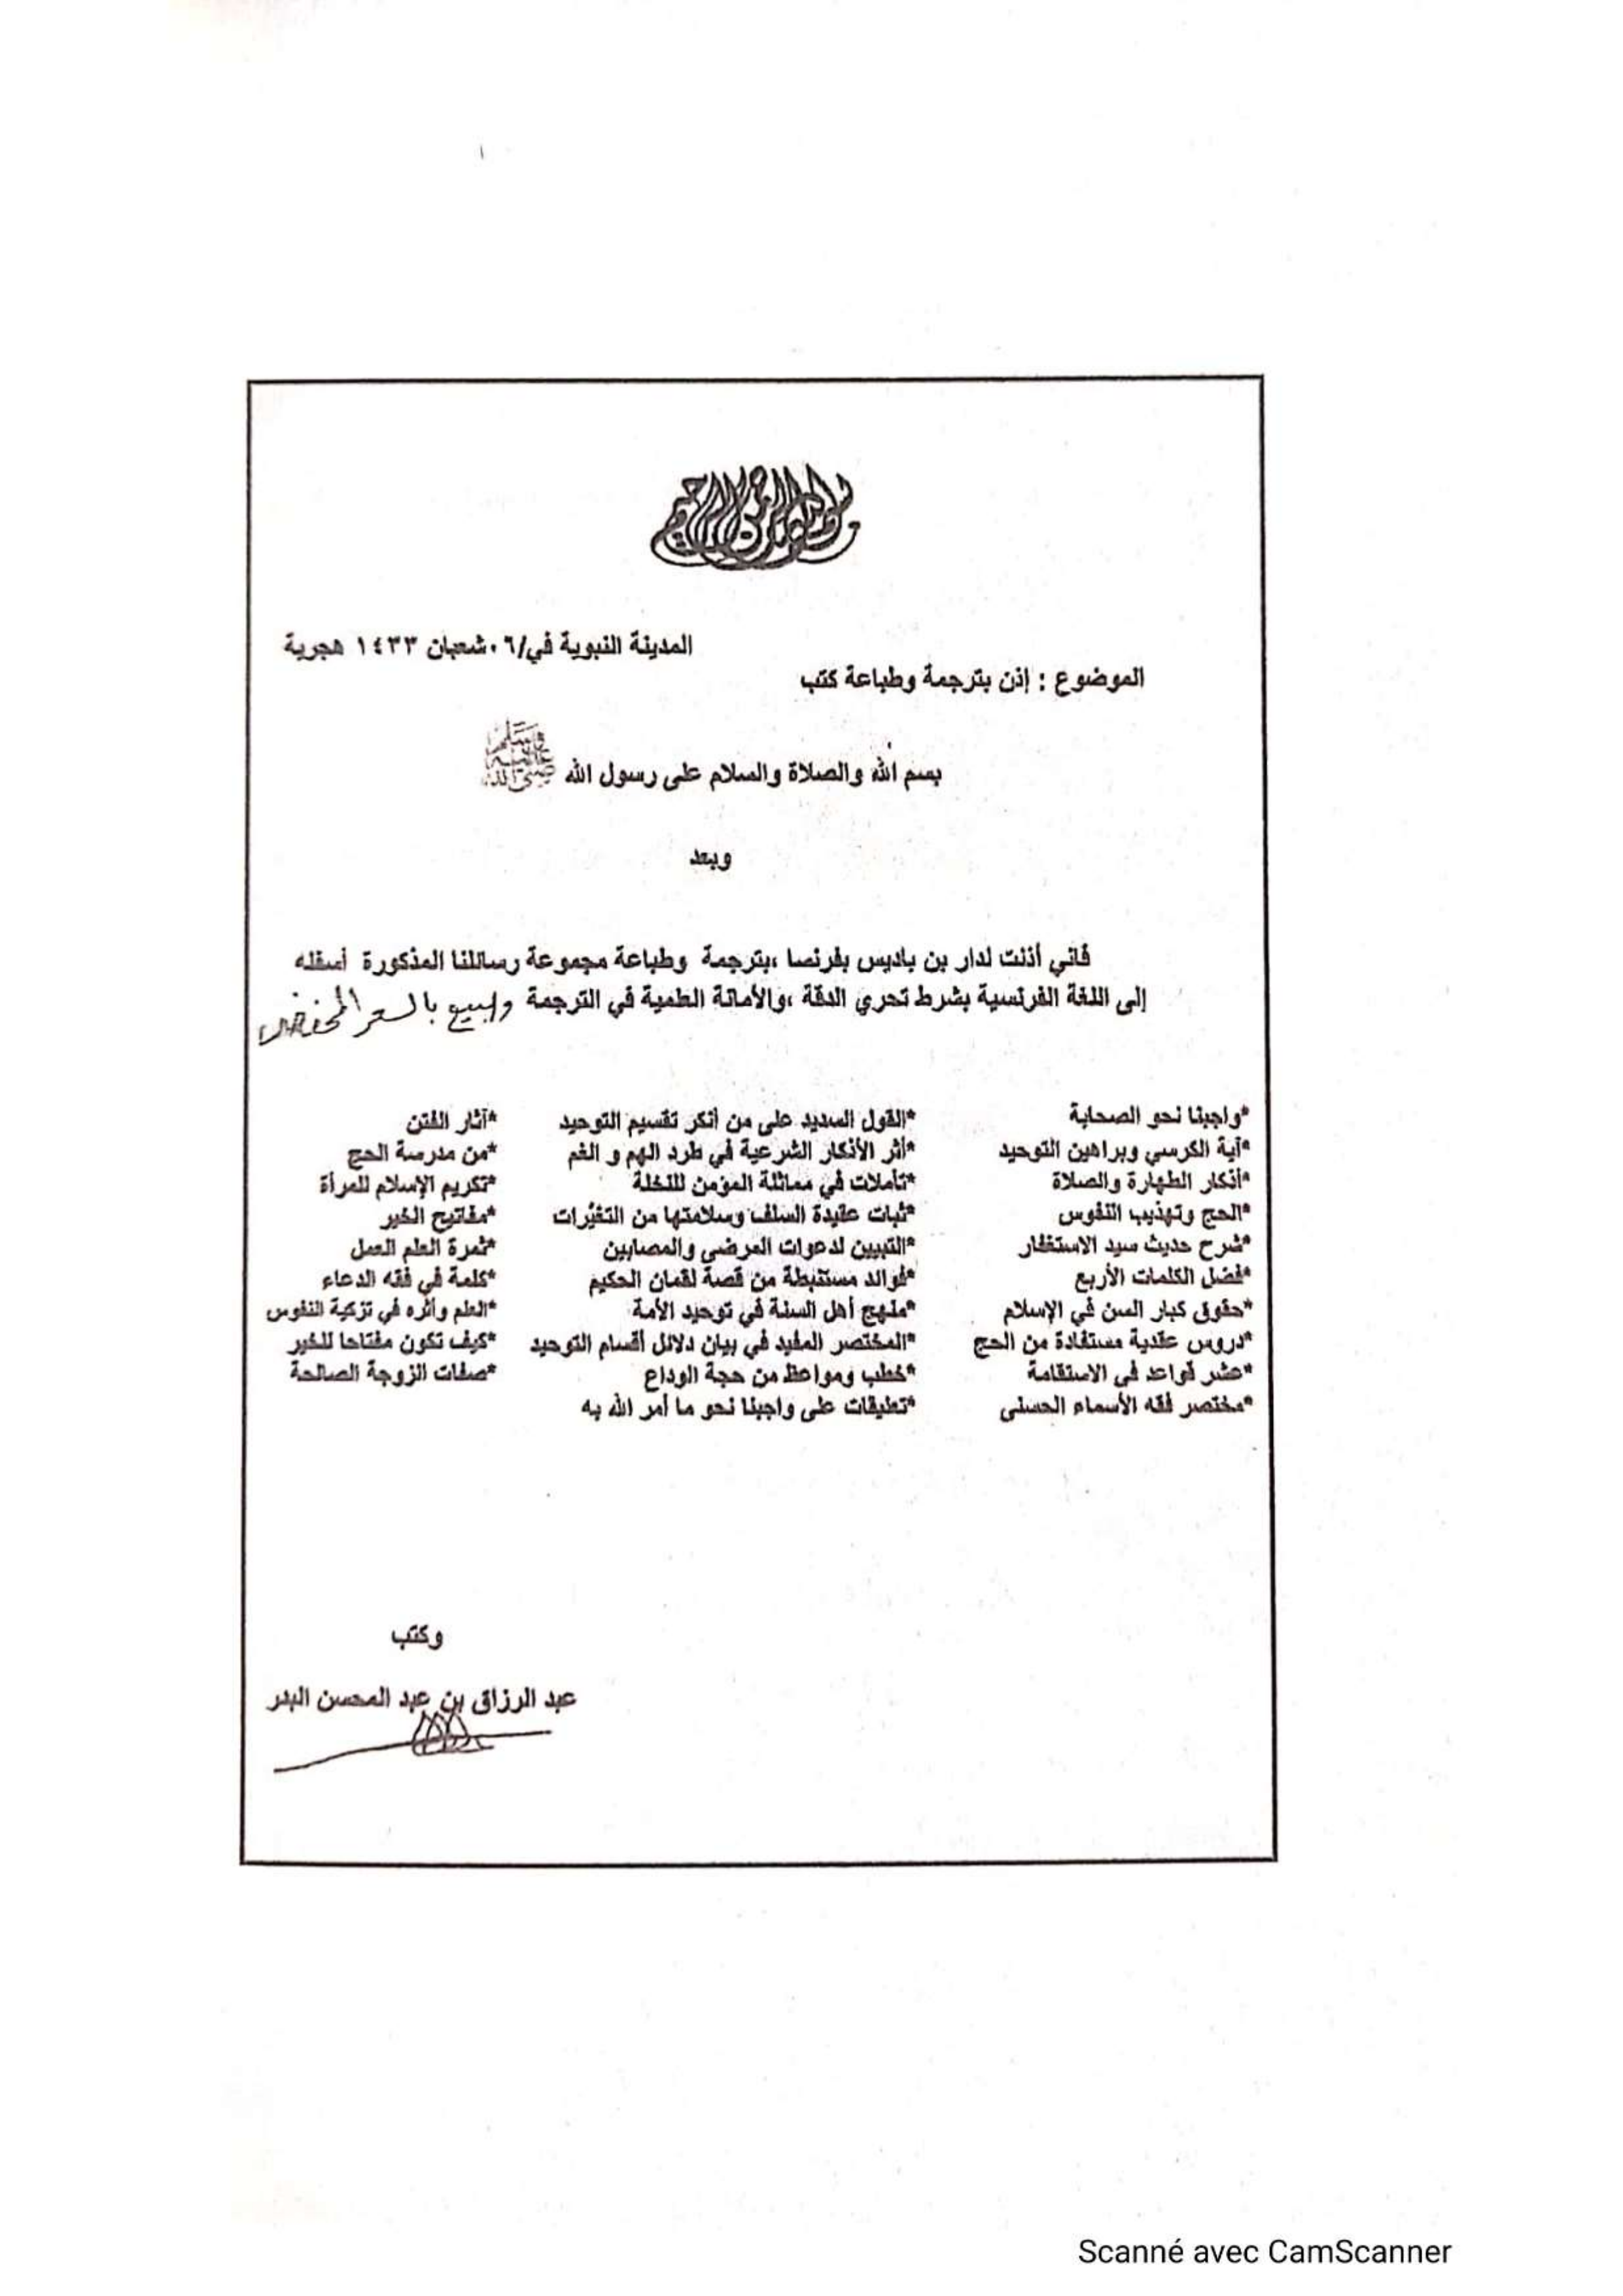 بسم الله الرحمن الرحيم
المدينة النبوية في/٠٦شعبان ١٤٣٣ هجرية
الموضوع : إذن بترجمة وطباعة كتب
بسم الله والصلاة والسلام على رسول الله ﷺ
وبعد
فاني أذنت لدار بن باديس بفرنسا ،بترجمة وطباعة مجموعة رسائلنا المذكورة أسفله
إلى اللغة الفرنسية بشرط تحري الدقة ،والأمانة العلمية في الترجمة والبيع بالسعر المخفض
*واجبنا نحو الصحابة
*آية الكرسي وبراهين التوحيد
*أذكار الطهارة والصلاة
*الحج وتهذيب النفوس
*شرح حديث سيد الاستغفار
*فضل الكلمات الأربع
*حقوق كبار السن في الإسلام
*دروس عقدية مستفادة من الحج
*عشر قواعد في الاستقامة
*مختصر فقه الأسماء الحسنى
*القول السديد على من أنكر تقسيم التوحيد
*أثر الأذكار الشرعية في طرد الهم و الغم
*تأملات في مماثلة المؤمن للنخلة
*ثبات عقيدة السلف وسلامتها من التغيُرات
*التبيين لدعوات المرضى والمصابين
*فوائد مستنبطة من قصة لقمان الحكيم
*منهج أهل السنة في توحيد الأمة
*المختصر المفيد في بيان دلائل أقسام التوحيد
*خطب ومواعظ من حجة الوداع
*تعليقات على واجبنا نحو ما أمر الله به
*آثار الفتن
*من مدرسة الحج
*تكريم الإسلام للمرأة
*مفاتيح الخير
*ثمرة العلم العمل
*كلمة في فقه الدعاء
*العلم وأثره في تزكية النفوس
*كيف تكون مفتاحا للخير
*صفات الزوجة الصالحة
وكتب
عبد الرزاق بن عبد المحسن البدر
Scanné avec CamScanner